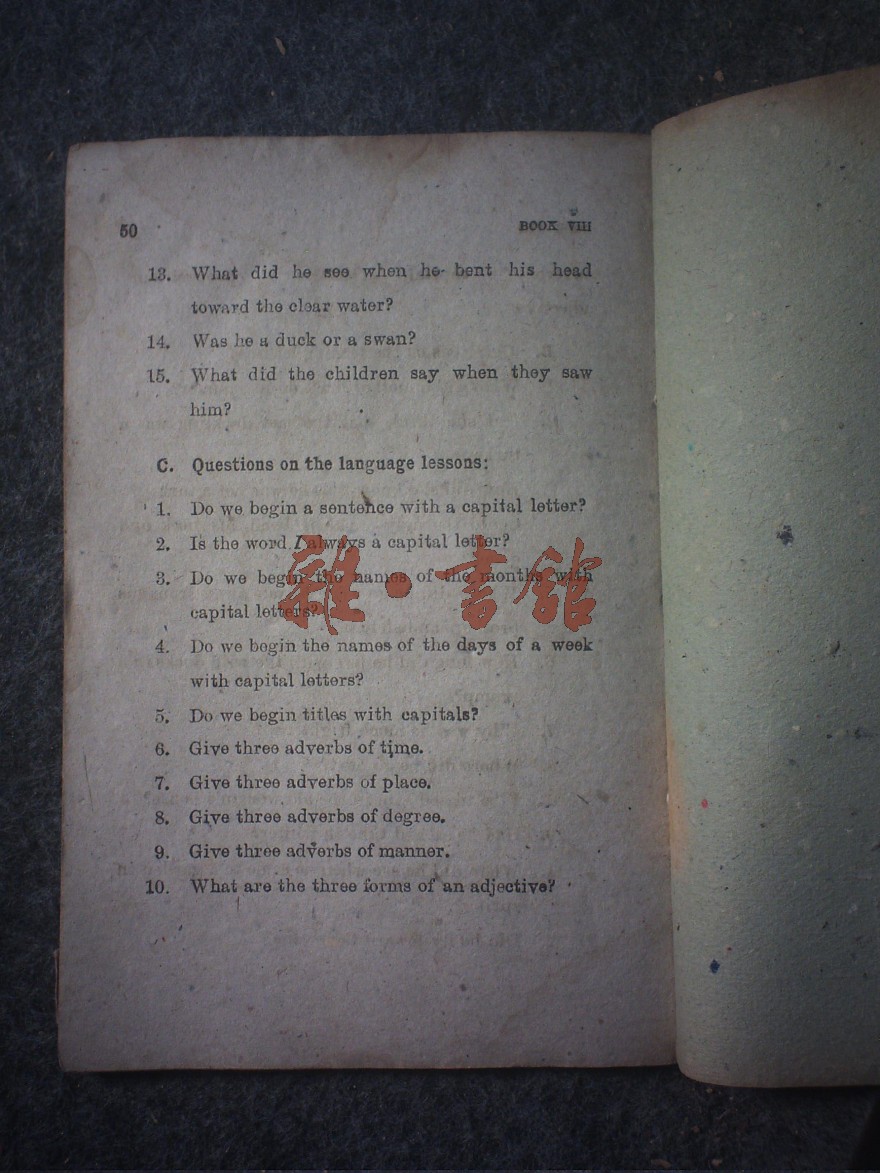 50
BOOK VIII
13. What did he see when he bent his head
toward the clear water?
14. Was he a duck or a swan?
15. What did the children say when they saw
him?
C. Questions on the language lessons:
1. Do we begin a sentence with a capital letter?
2. Is the word I always a capital letter?
3. Do we begin the names of the months with
capital letters?
4. Do we begin the names of the days of a week
with capital letters?
5. Do we begin titles with capitals?
6. Give three adverbs of time.
7. Give three adverbs of place.
8. Give three adverbs of degree.
9. Give three adverbs of manner.
10. What are the three forms of an adjective?
雜·書館